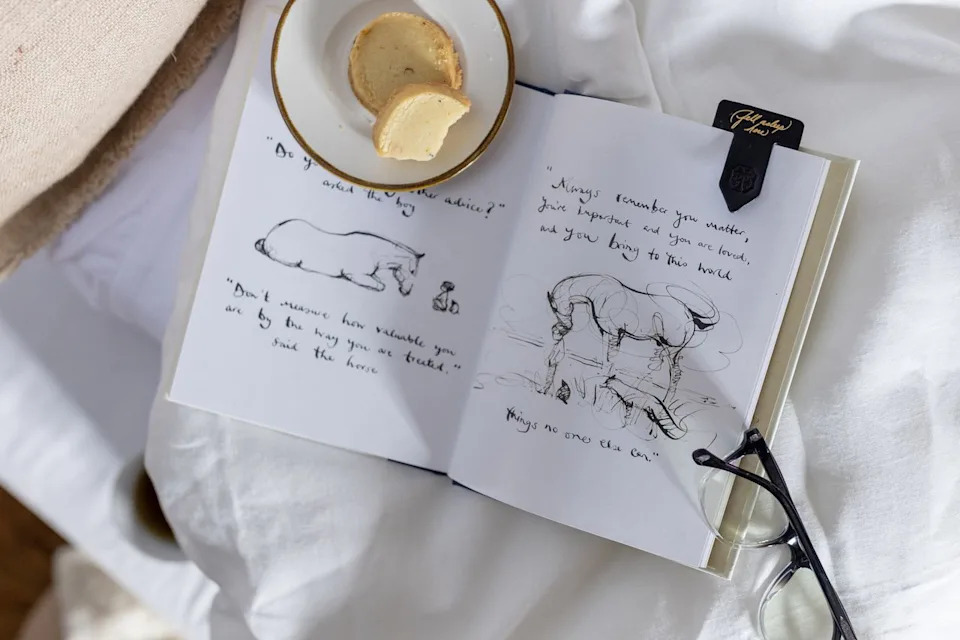 "Do y
ther advice?"
asked the boy
"Don't measure how valuable you
are by the way you are treated."
said the horse
"Always remember you matter,
you're important and you are loved,
and you bring to this world
things no one else can."
Fell asleep
here